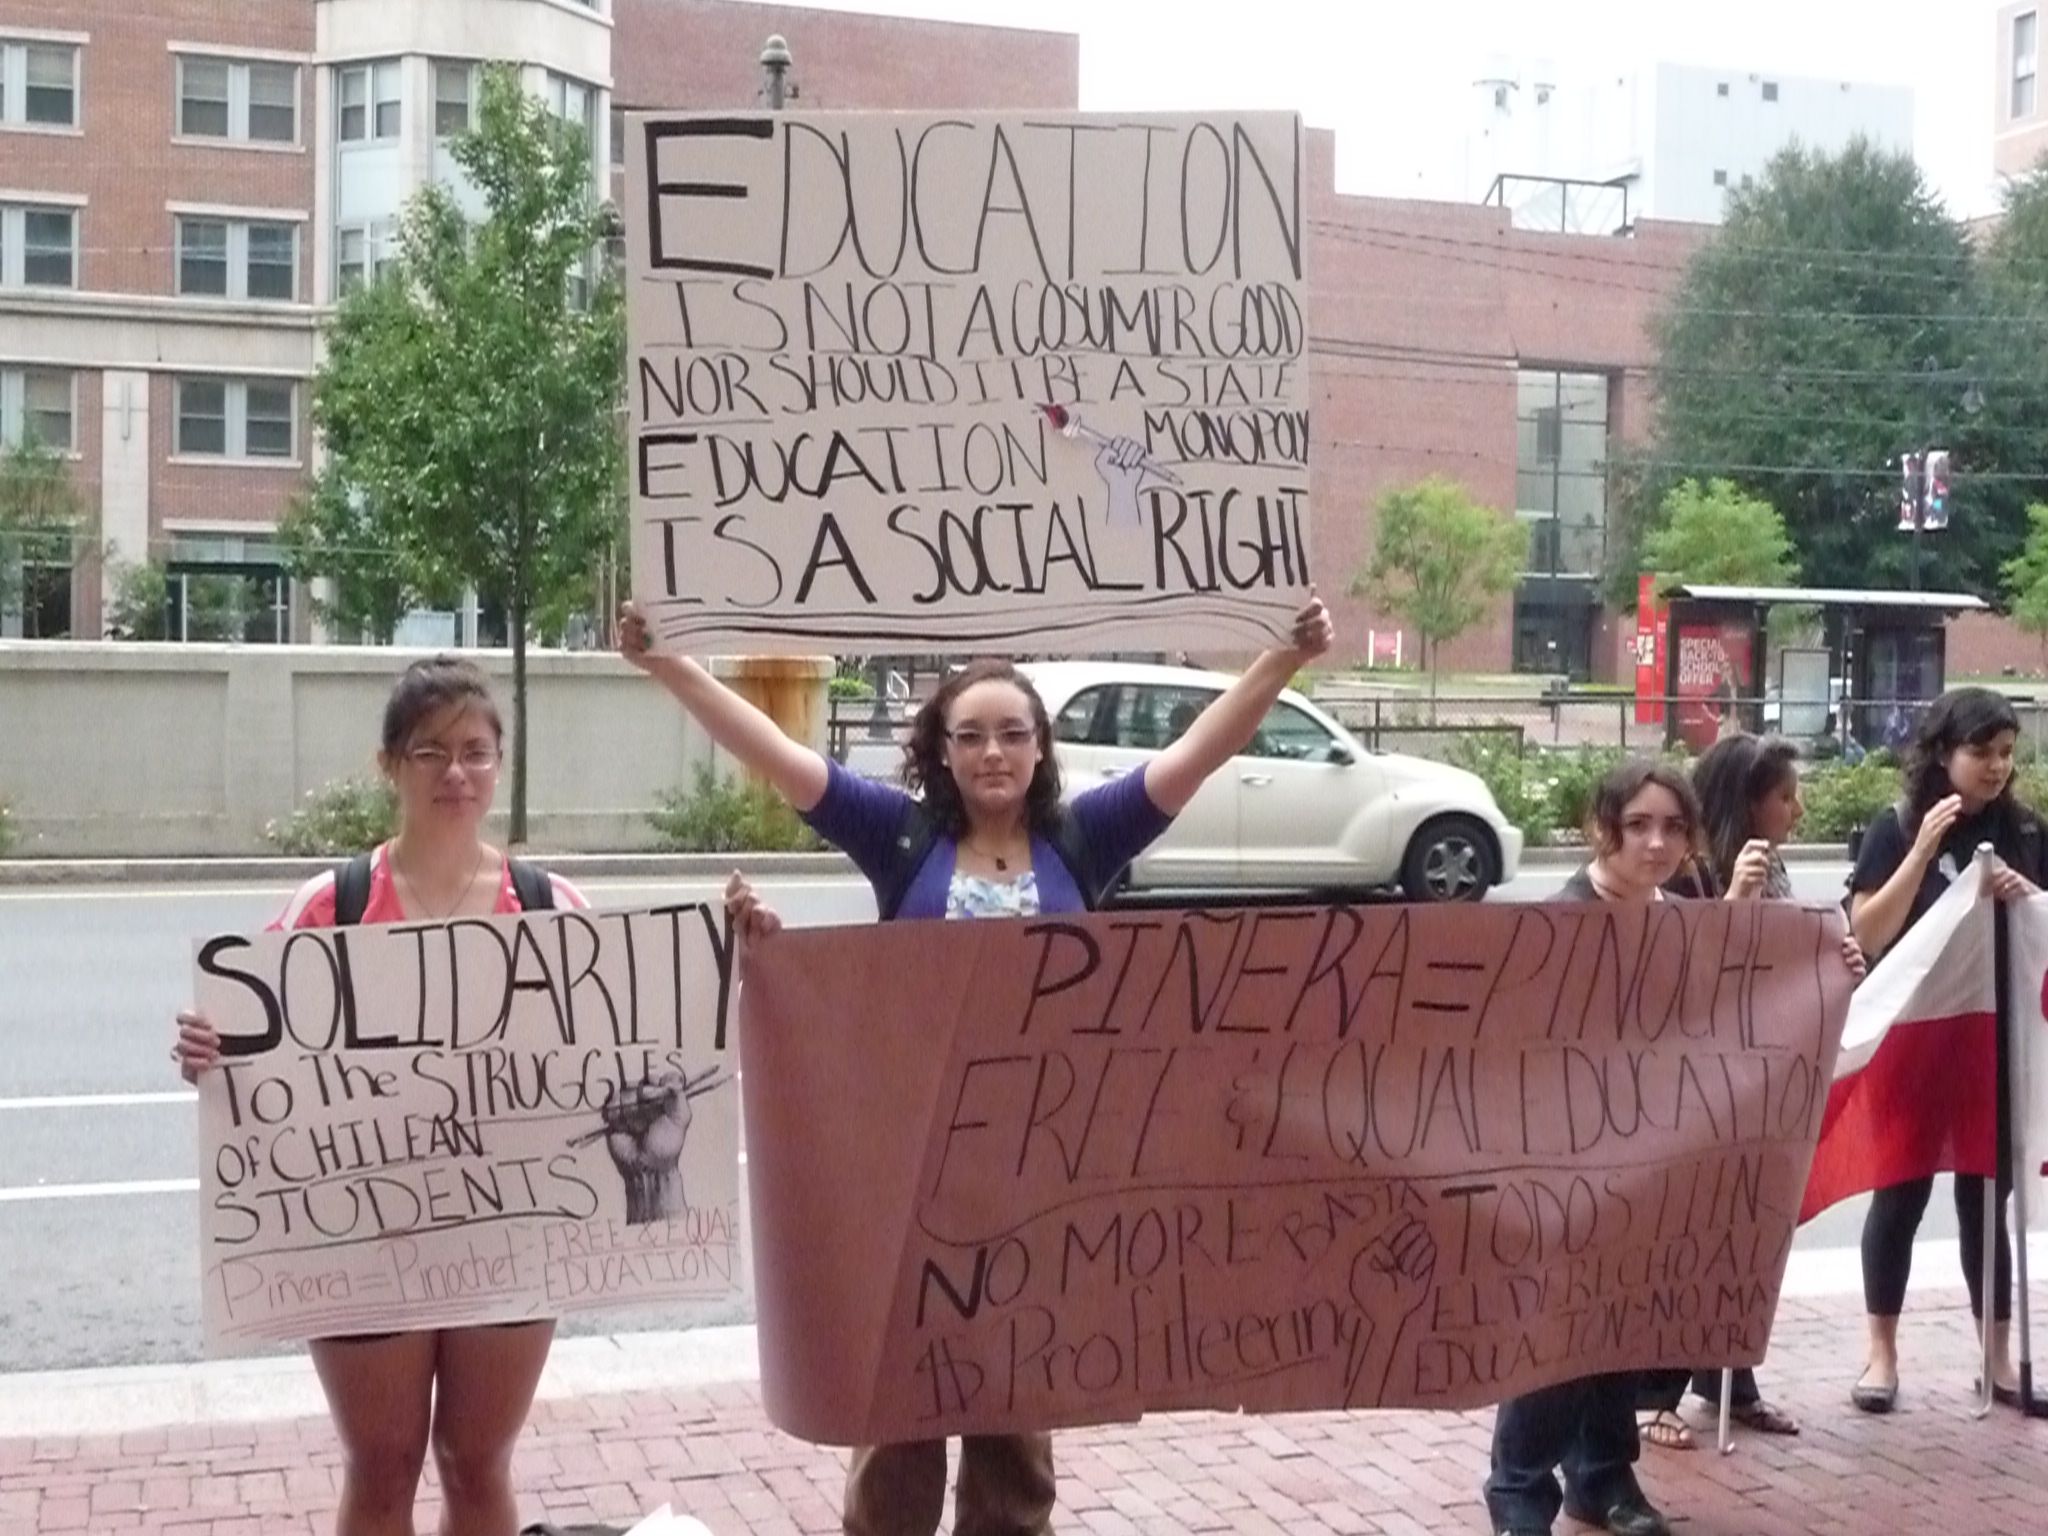 EDUCATION
IS NOT A COSUMER GOOD
NOR SHOULD IT BE A STATE
MONOPOLY
EDUCATION
IS A SOCIAL RIGHT
SOLIDARITY
To The STRUGGLES
Of CHILEAN
STUDENTS
Piñera = Pinochet
FREE & EQUAL
EDUCATION
PIÑERA = PINOCHET
FREE & EQUAL EDUCATION
NO MORE
$ Profileering
BASTA
TODOS
EL DERECHO A
NO MA
LUCRO
SPECIAL
BACK-TO-
SCHOOL
OFFER